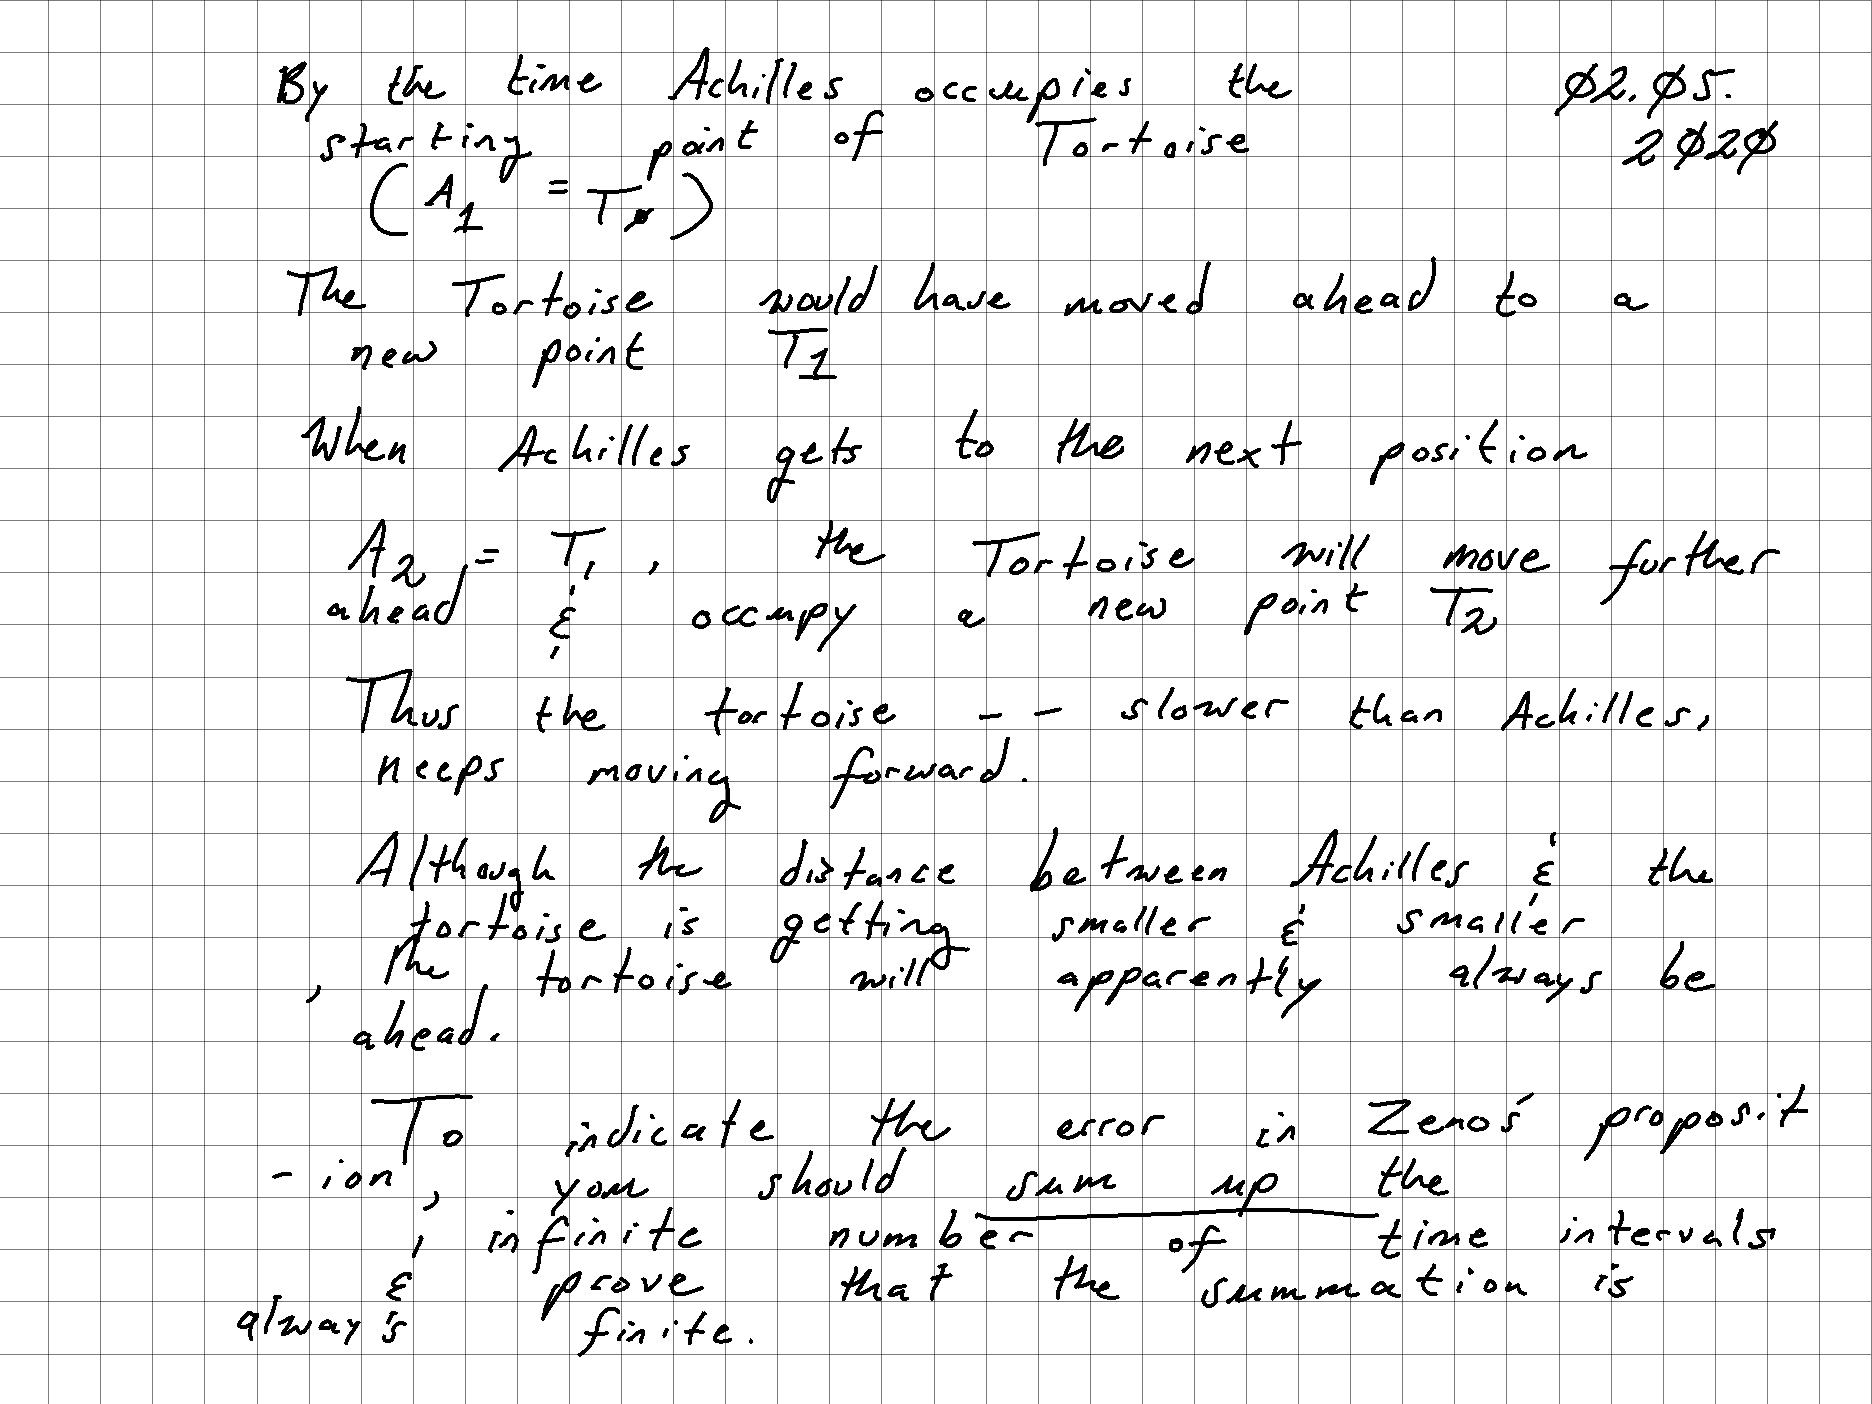 By the time Achilles occupies the
02.05.
starting point of Tortoise
2020
(A1 = T0)
The Tortoise would have moved ahead to a
new point T1
When Achilles gets to the next position
A2 = T1, the Tortoise will move further
ahead & occupy a new point T2
Thus the tortoise -- slower than Achilles,
keeps moving forward.
Although the distance between Achilles & the
tortoise is getting smaller & smaller
, the tortoise will apparently always be
ahead.
To indicate the error in Zeno's proposit
-ion, you should sum up the
infinite number of time intervals
& prove that the summation is
always finite.